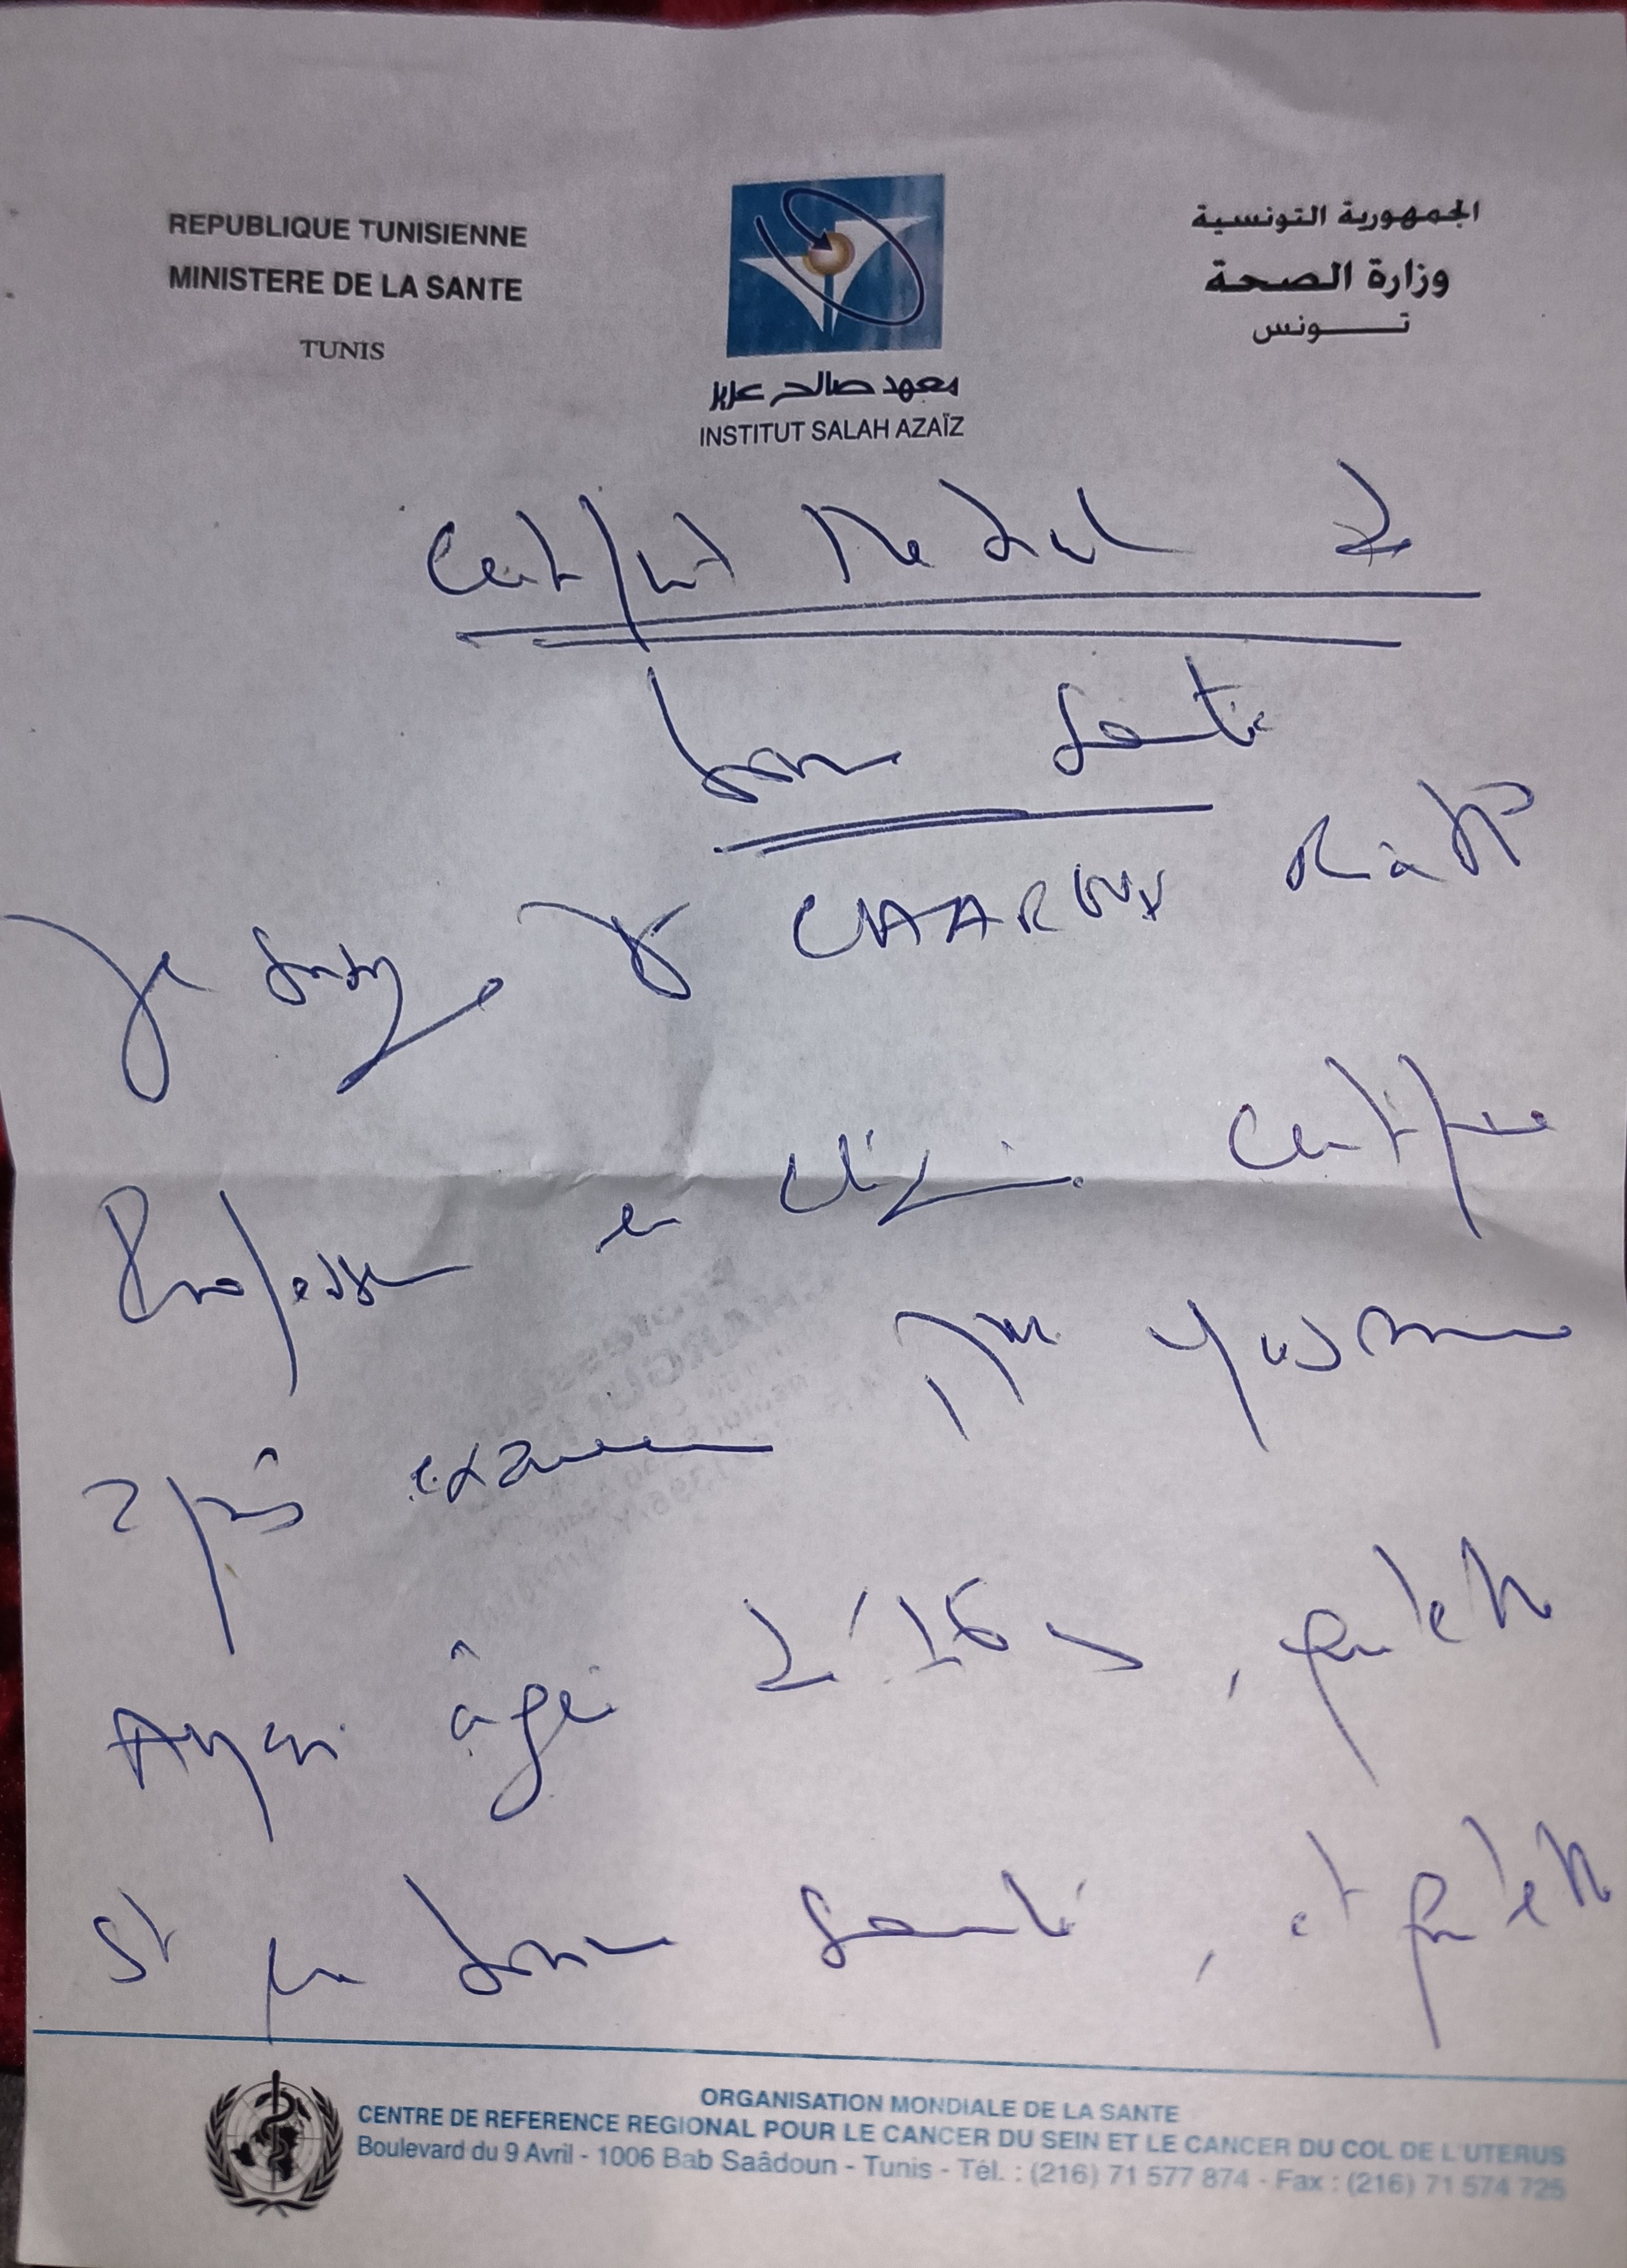 REPUBLIQUE TUNISIENNE
MINISTERE DE LA SANTE
TUNIS
الجمهورية التونسية
وزارة الصحة
تونس
معهد صالح عزيز
INSTITUT SALAH AZAÏZ
Certificat Medical de
bonne santé
Je soussigné Dr
Professeur en certifie
après examen Yasmine
âgée de 16 ans, qu'elle
st en bonne santé, et qu'elle
ORGANISATION MONDIALE DE LA SANTE
CENTRE DE REFERENCE REGIONAL POUR LE CANCER DU SEIN ET LE CANCER DU COL DE L'UTERUS
Boulevard du 9 Avril - 1006 Bab Saâdoun - Tunis - Tél. : (216) 71 577 874 - Fax : (216) 71 574 725